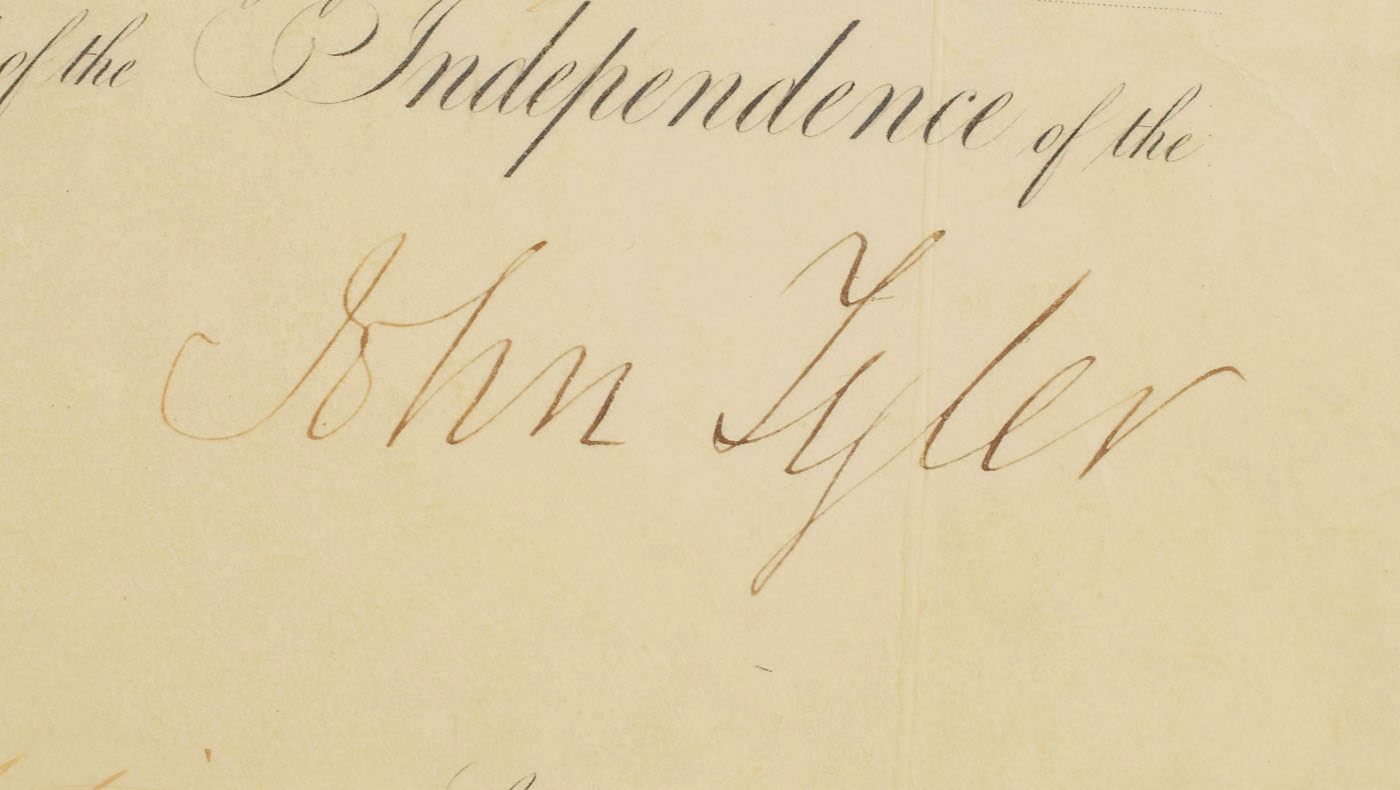 of the Independence of the
John Tyler